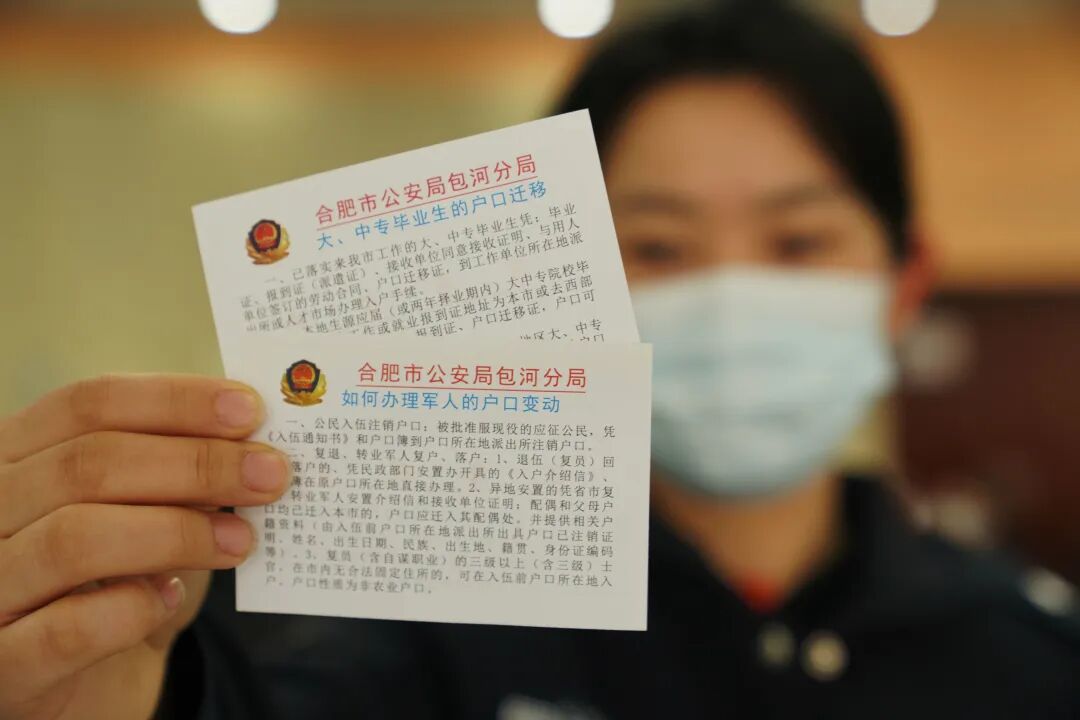 合肥市公安局包河分局
大、中专毕业生的户口迁移
一、已落实来我市工作的大、中专毕业生凭：毕业
证、报到证（派遣证）、接收单位同意接收证明、与用人
单位签订的劳动合同，户口迁移证，到工作单位所在地派
出所或人才市场办理入户手续。
本地生源应届（或两年择业期内）大中专院校毕
工作或就业报到证地址为本市或去西部
报到证、户口迁移证，户口可
地区大、中专
合肥市公安局包河分局
如何办理军人的户口变动
一、公民入伍注销户口：被批准服现役的应征公民，凭
《入伍通知书》和户口簿到户口所在地派出所注销户口。
二、复退、转业军人复户、落户：1、退伍（复员）回
落户的、凭民政部门安置办开具的《入户介绍信》、
簿在原户口所在地直接办理。2、异地安置的凭省市复
转业军人安置介绍信和接收单位证明；配偶和父母户
口均已迁入本市的，户口应迁入其配偶处。并提供相关户
籍资料（由入伍前户口所在地派出所出具户口已注销证
明，姓名、出生日期、民族、出生地、籍贯、身份证编码
等）。3、复员（含自谋职业）的三级以上（含三级）士
官，在市内无合法固定住所的，可在入伍前户口所在地入
户。户口性质为非农业户口。